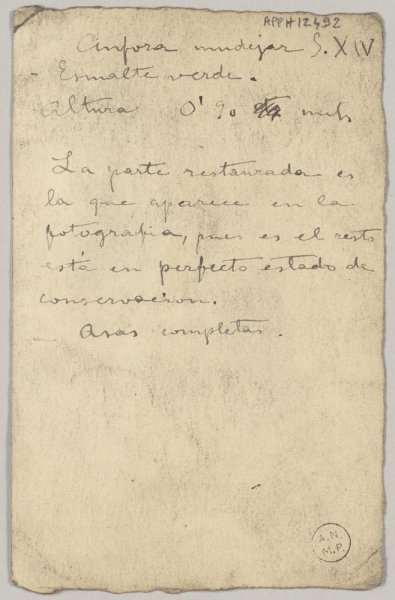 APPH12492
Anfora mudejar S. XIV
- Esmalte verde.
Altura 0'90 mts
La parte restaurada es
la que aparece en la
fotografia, pues es el resto
está en perfecto estado de
conservacion.
- Asas completas.
A.N.
M.P.